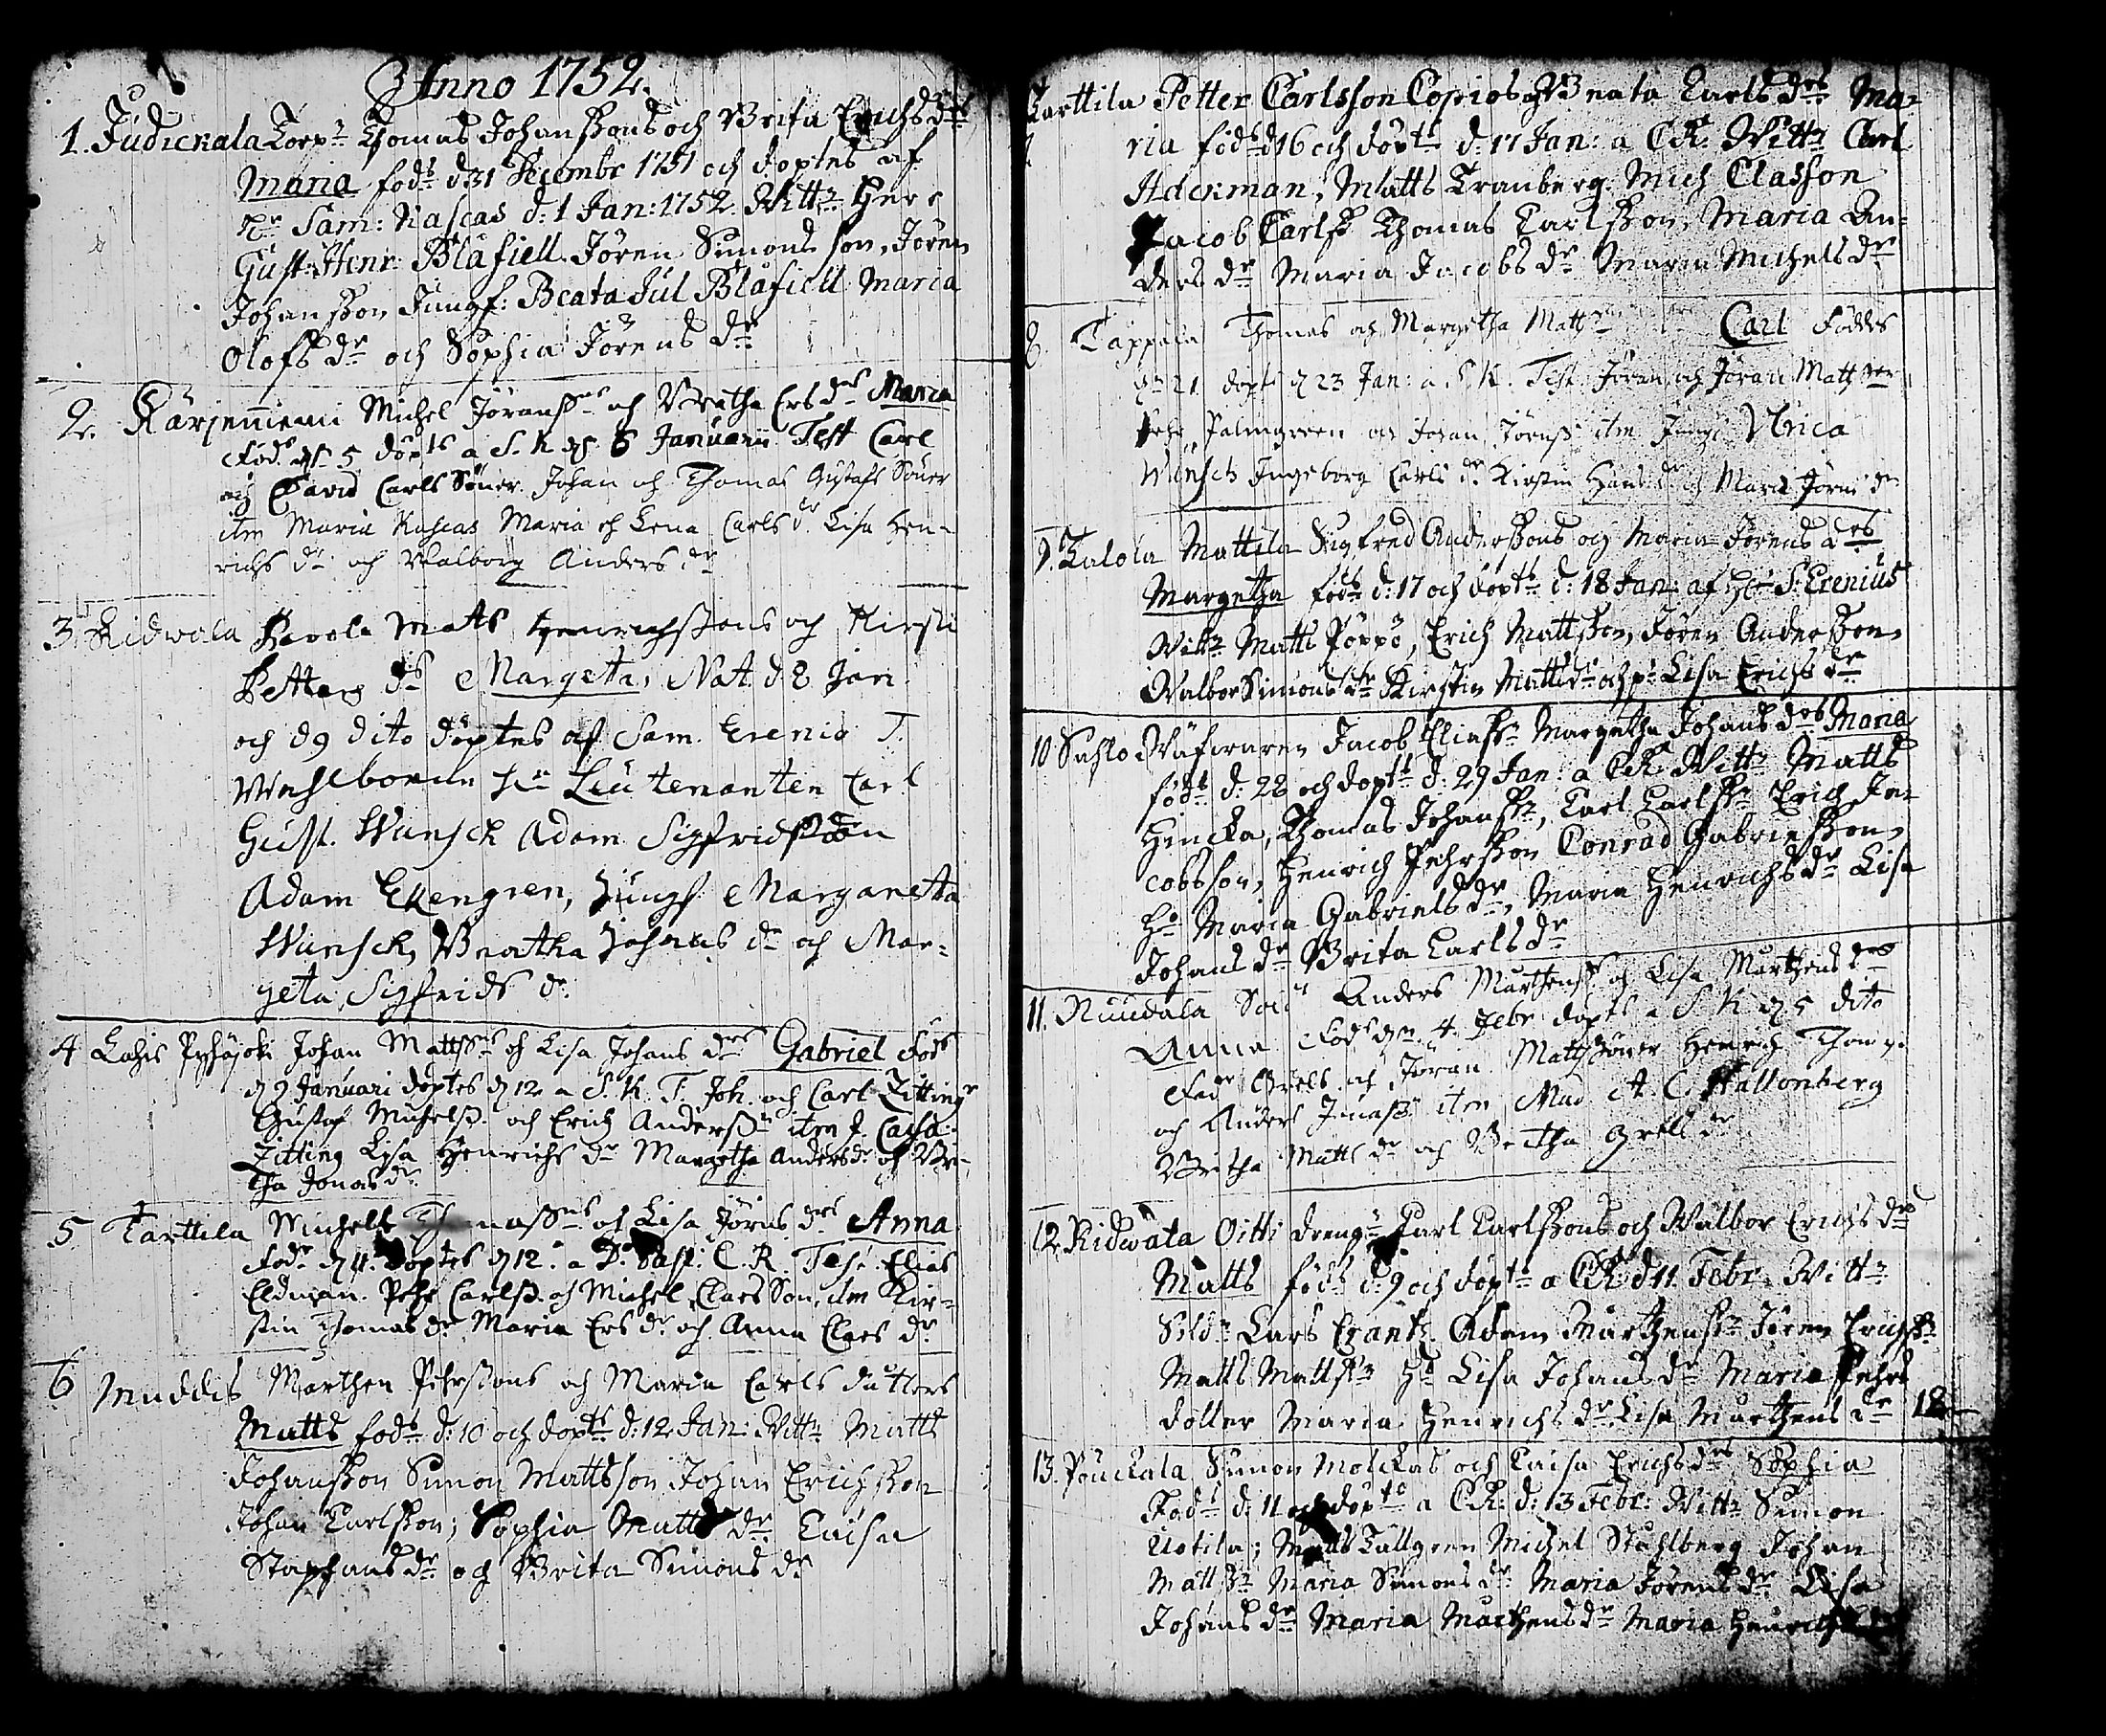 Anno 1752.
1. Judickala Torpr Thomas Johanssons och Brita Erichs drs
Maria föds d 31 Decembr 1751 och döptes af
Hr Sam: Kascas d: 1 Jan: 1752 Wittn Herr
Gust: Henr: Blåfiell Jören Simons son, Jören
Johansson Jungf: Beata Jul Blåfiell Maria
Olofs dr och Sophia Jörens dr
2. Kärjenniemi Michel Jöranssns och Breatha Ers drs Maria
Föds d 5 döpts a S. K d 6 Januarii Test Carl
och David Carls Söner Johan och Thomas Gustafs Söner
item Maria Kascas Maria och Lena Carls dr Lisa Hen-
richs dr och Walborg Anders dr
3. Ridwala Pavola Mats Henrichssons och Kirsti
Petters ds Margeta, Nat. d 8 Jan
och d 9 dito döptes af Sam. Erenio T.
Wählborne Hr Lieutenanten Carl
Gust. Wunsch Adam Sigfridsson
Adam Ekengren, Jungf. Margareta
Wunsch, Breatha Johans dr och Mar-
geta Sigfrids dr.
4 Lahis Pyhäjoki Johan Mattssns och Lisa Johans drs Gabriel Föds
d 9 Januari döptes d 12 a S. K. T. Joh. och Carl Zitting
Gustaf Michelss. och Erich Anderssn item J. Caisa
Zitting Lisa Henrichs dr Margetha Anders dr och Bri-
tha Jonas dr
5 Tarttila Michell Thomassns och Lisa Jörns drs Anna
Föds d 11. döptes d 12. a C. R. Test. Elias
Eldman. Pehr Carlss. och Michel Claes Son, item Kir-
stin Thomas dr Maria Ers dr och Anna Claes dr
6 Muddis Marthen Pehrssons och Maria Carls dotters
Matts föds d: 10 och döpts d: 12 Jan: Wittn Matts
Johansson Simon Mattsson Johan Erichsson
Johan Carlsson; Sophia Matts dr Caisa
Staphans dr och Brita Simons dr
Tarttila Petter Carlsson Copios och Beata Carls drs Ma-
7.
ria föds d 16 och döpts d: 17 Jan: a C.R: Wittn Carl
Ackerman, Matts Tranberg Mich Classon
Jacob Carlss Thomas Carlsson, Maria An-
ders dr Maria Jacobs dr Maria Michels dr
8. Tappala Thomas och Margetha Carl Föddes
d 21 döpts d 23 Jan: a S. K. Test. Jöran och Jöran Mattsr
Pehr Palmgreen och Johan Jörnss item Jungf. Ulrica
Wunsch Ingeborg Carls dr Kirstin Hans dr och Maria Jörns dr
9. Kalola Mattila Sigfred Anderssons och Maria Jörens drs
Margetha föds d: 17 och döpts d: 18 Jan: af Hr S: Erenius
Wittn Matts Poppo, Erich Mattsson, Jören Andersson,
Walbor Simons dr Kirstin Matts dr och Lisa Erichs dr
10 Sahlo Jacob Eliassn Margetha Johans drs Maria
föds d: 28 och döpts d: 29 Jan: a C.R. Wittn Matts
Hincka, Thomas Johanssn, Carl Carlssn Erich Ja-
cobsson, Henrich Pehrsson Conrad Gabrielsson,
Hu Maria Gabriels dr, Maria Henrichs dr Lisa
Johans dr Brita Carls dr
11. Nuudala Sold Anders Marthenss och Lisa Marthens drs
Anna Föds d 4 Febr döpts a S. K d 5 dito
Fad Grels och Jöran Matts söner Henrich Thom
och Anders Jonass item Mad A. C. Hallonberg
Britha Matts dr och Britha Grels dr
12. Ridwala Oitti Drengn Carl Carlssons och Walbor Erichs drs
Matts föds d: 9 och döpts a C.R. d 11 Febr. Wittn
Soldn Lars Crantz. Adam Marthenssn Jören Erichssn
Matts Mattssn Hu Lisa Johans dr Maria Pehrs
dotter Maria Henrichs dr Lisa Marthens dr 12
13. Pouckala Simon Molckas och Caisa Erichs drs Sophia
Föds d: 11 och döpts a C.R: d: 13 Febr: Wittn Simon
Uotila; Matts Tallgren Michel Stahlberg Johan
Mattssn Maria Simons dr Maria Jörens dr Lisa
Johans dr Maria Marthens dr Maria Henrichs